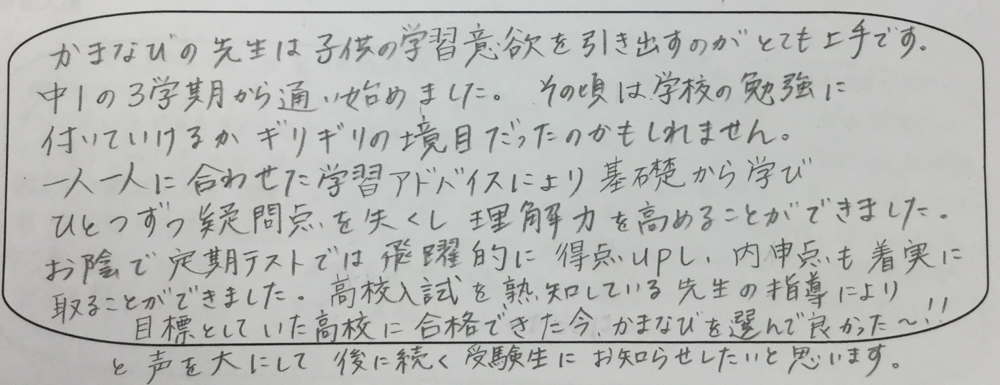 かまなびの先生は子供の学習意欲を引き出すのがとても上手です。
中1の3学期から通い始めました。 その頃は学校の勉強に
付いていけるか ギリギリの境目だったのかもしれません。
一人一人に合わせた学習アドバイスにより 基礎から学び
ひとつずつ疑問点を失くし 理解力を高めることができました。
お陰で 定期テストでは 飛躍的に 得点upし、内申点も着実に
取ることができました。高校入試を熟知している先生の指導により
目標としていた高校に合格できた今、かまなびを選んで良かった〜!!
と声を大にして 後に続く受験生に お知らせしたいと思います。